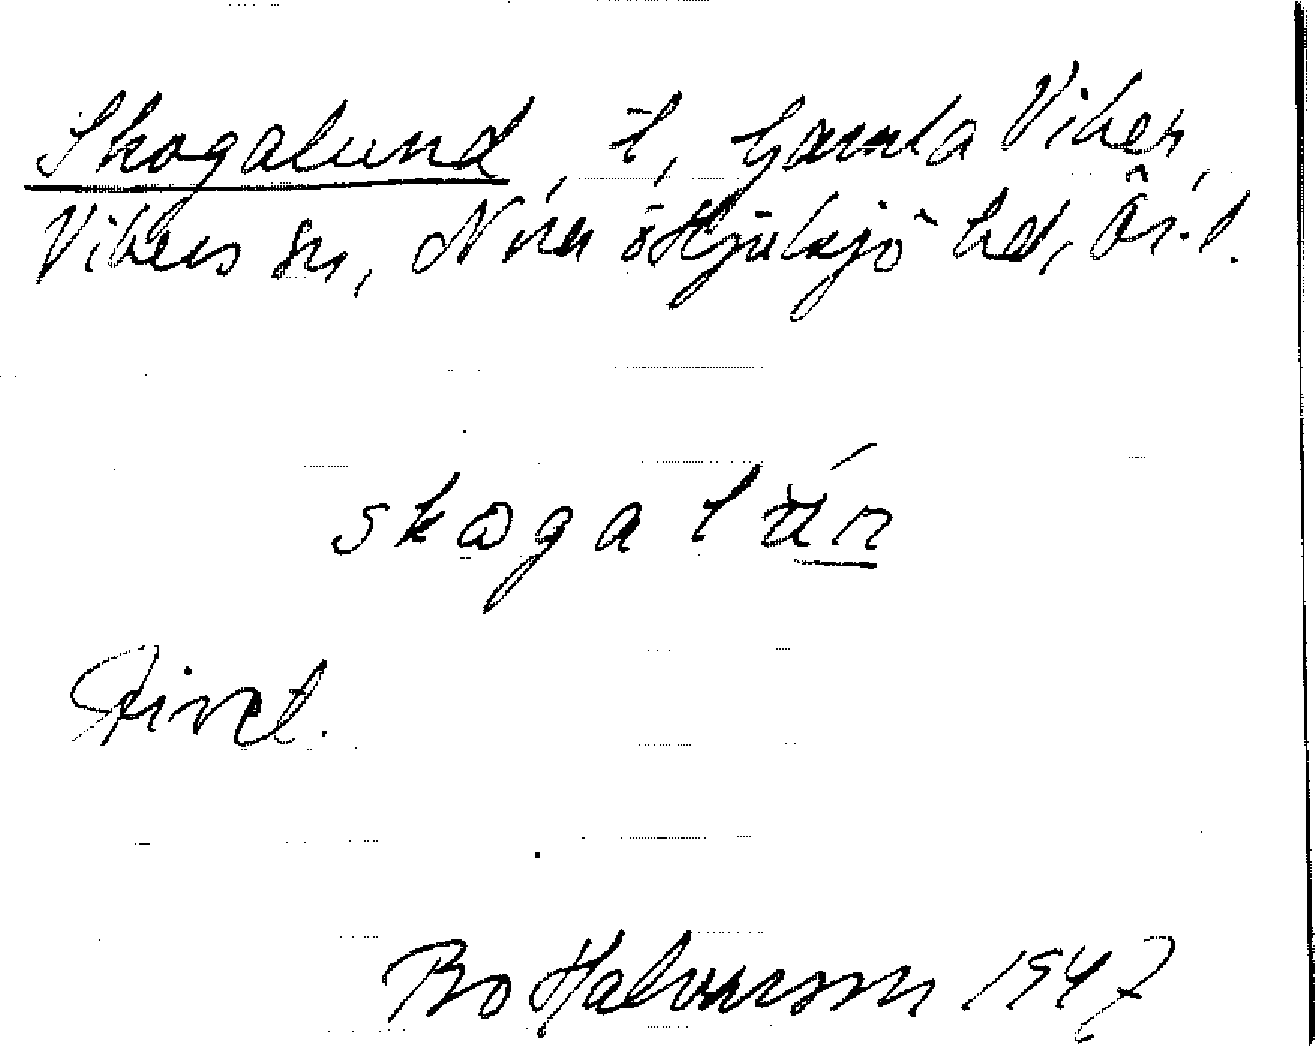 Skogalund, t, Gamla Viker,
Vikers sn, Nora o Hjulsjö hd, Ör. l.
skogalun
Bo Halvarson 1947